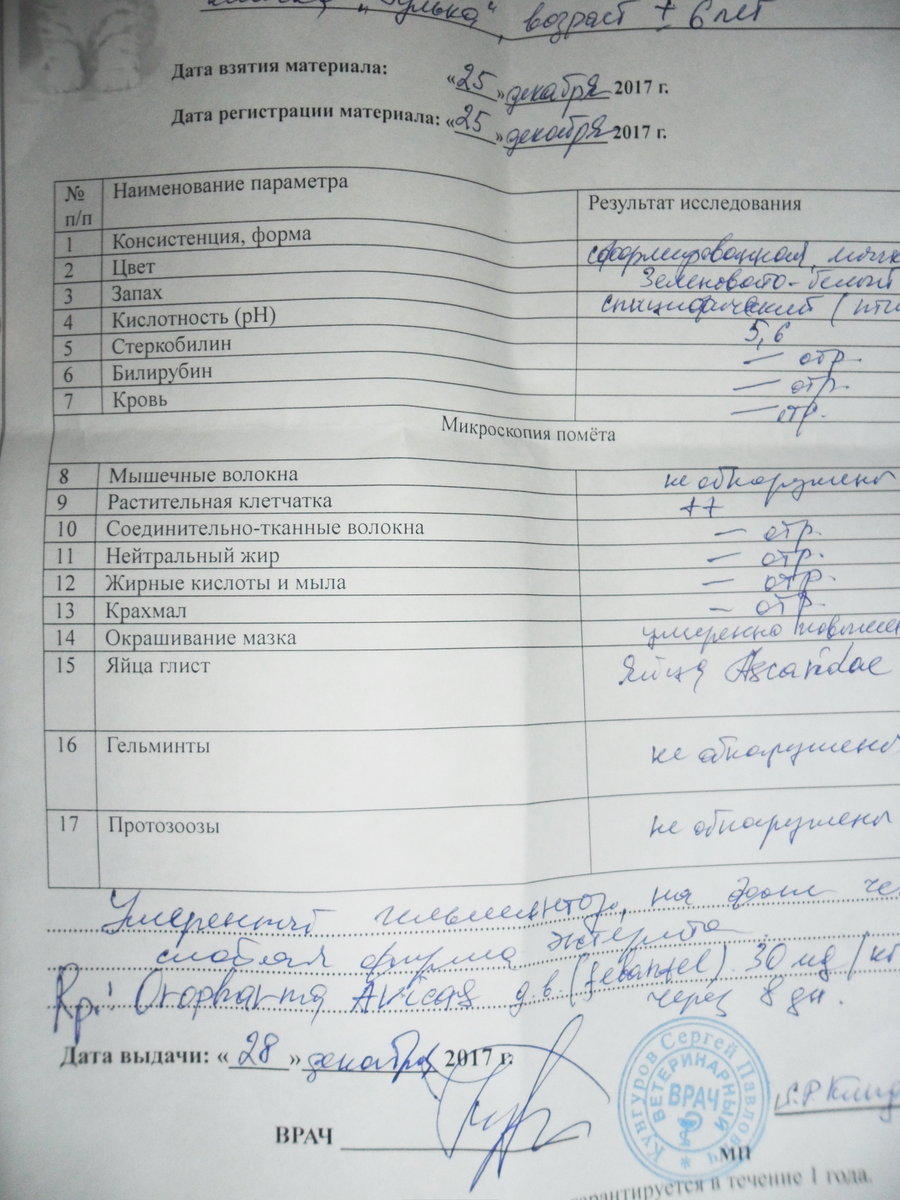 возраст ± 6 лет
Дата взятия материала: «25» декабря 2017 г.
Дата регистрации материала: «25» декабря 2017 г.
№ п/п Наименование параметра Результат исследования
1 Консистенция, форма сформированная,
2 Цвет Зеленовато-белый
3 Запах специфический
4 Кислотность (pH) 5,6
5 Стеркобилин — отр.
6 Билирубин — отр.
7 Кровь — отр.
Микроскопия помёта
8 Мышечные волокна не обнаружены
9 Растительная клетчатка ++
10 Соединительно-тканные волокна — отр.
11 Нейтральный жир — отр.
12 Жирные кислоты и мыла — отр.
13 Крахмал – отр.
14 Окрашивание мазка умеренно
15 Яйца глист Яйца Ascaridae
16 Гельминты не обнаружено
17 Протозоозы не обнаружены
Умеренный гельминтоз, на фоне
слабая форма
Rp: д.в. (febantel) 30 мg/кг
через 8 дн.
Дата выдачи: «28» декабря 2017 г.
Кунгуров Сергей Павлович
ВЕТЕРИНАРНЫЙ
ВРАЧ
ВРАЧ
МП
гарантируется в течение 1 года.